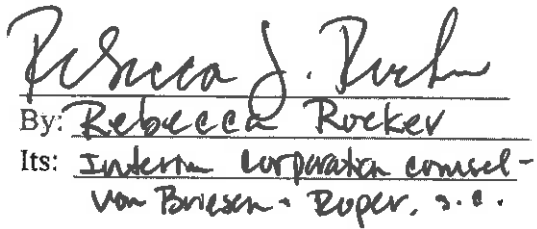 Rebecca J. Roeker
By: Rebecca Roeker
Its: Interim Corporation Counsel -
von Briesen & Roper, s.c.